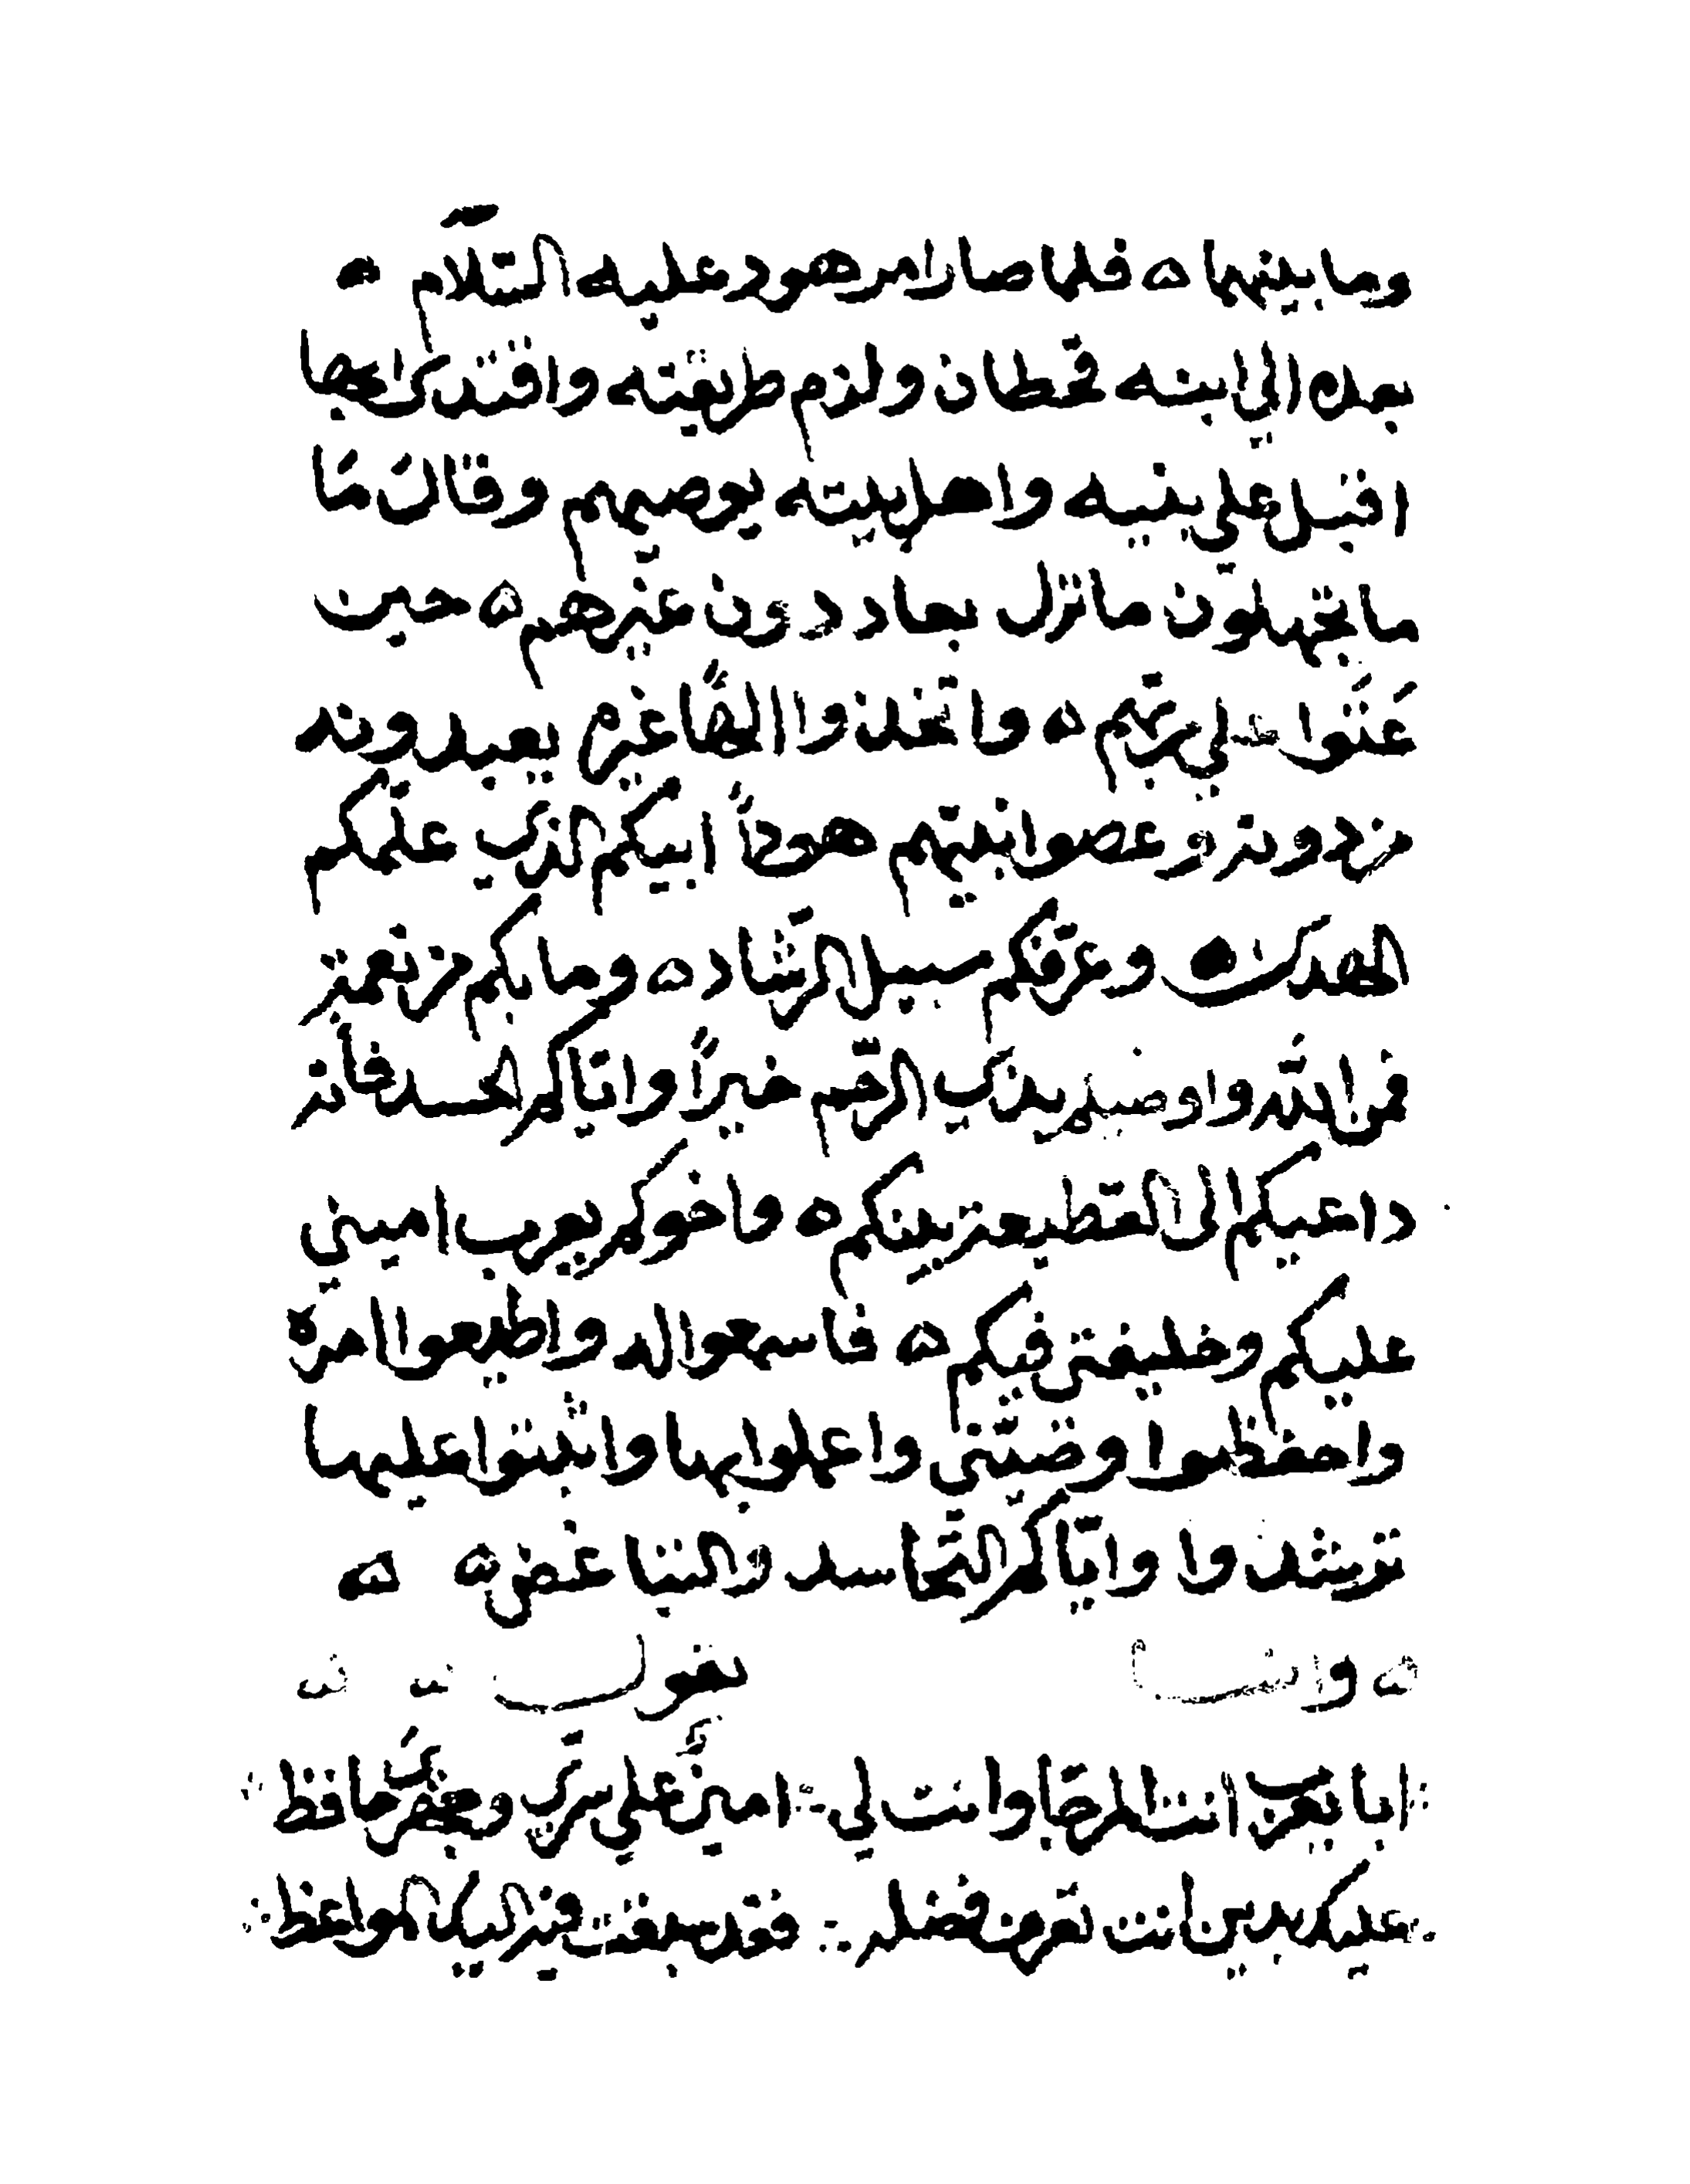 وما بينهما ه فلما صار امر هود عليه السّلام ه
بعده الي ابنه قحطان ولزم طريقته واقتدى بها
اقبل علي بنيه واهل بيته يوصيهم وقال مَا
ما تجهلون ما نزل بعاد دون غيرهم ه حين
عَتَوا علي ربّهم ه واتخذوا الهًا غيره يعبدونه
من دونه وعصوا نبيّهم هودًا ابيكم الذي علّمكم
الهدى وعرّفكم سبيل الرّشاد ه وما بكم من نعمة
فمن الله واوصيكم بذي الرّحم خيرًا وايّاكم الحسد فانه
داعيكم الى القطيعة بينكم ه واخوكم يعرب اميني
عليكم وخليفتي فيكم ه فاسمعوا له واطيعوا امره
واحفظوا وصيّتي واعملوا بها واثبتوا عليها
ترشدوا وايّاكم التّحاسد والتباغض ه ه
ه وانشا يقول
ابا يعرب انت المرجّا وانت لي امين علي سرّي وجهري حافظ
عليك بدين انت تعرف فضله فقد سبقت فيه اليك المواعظ